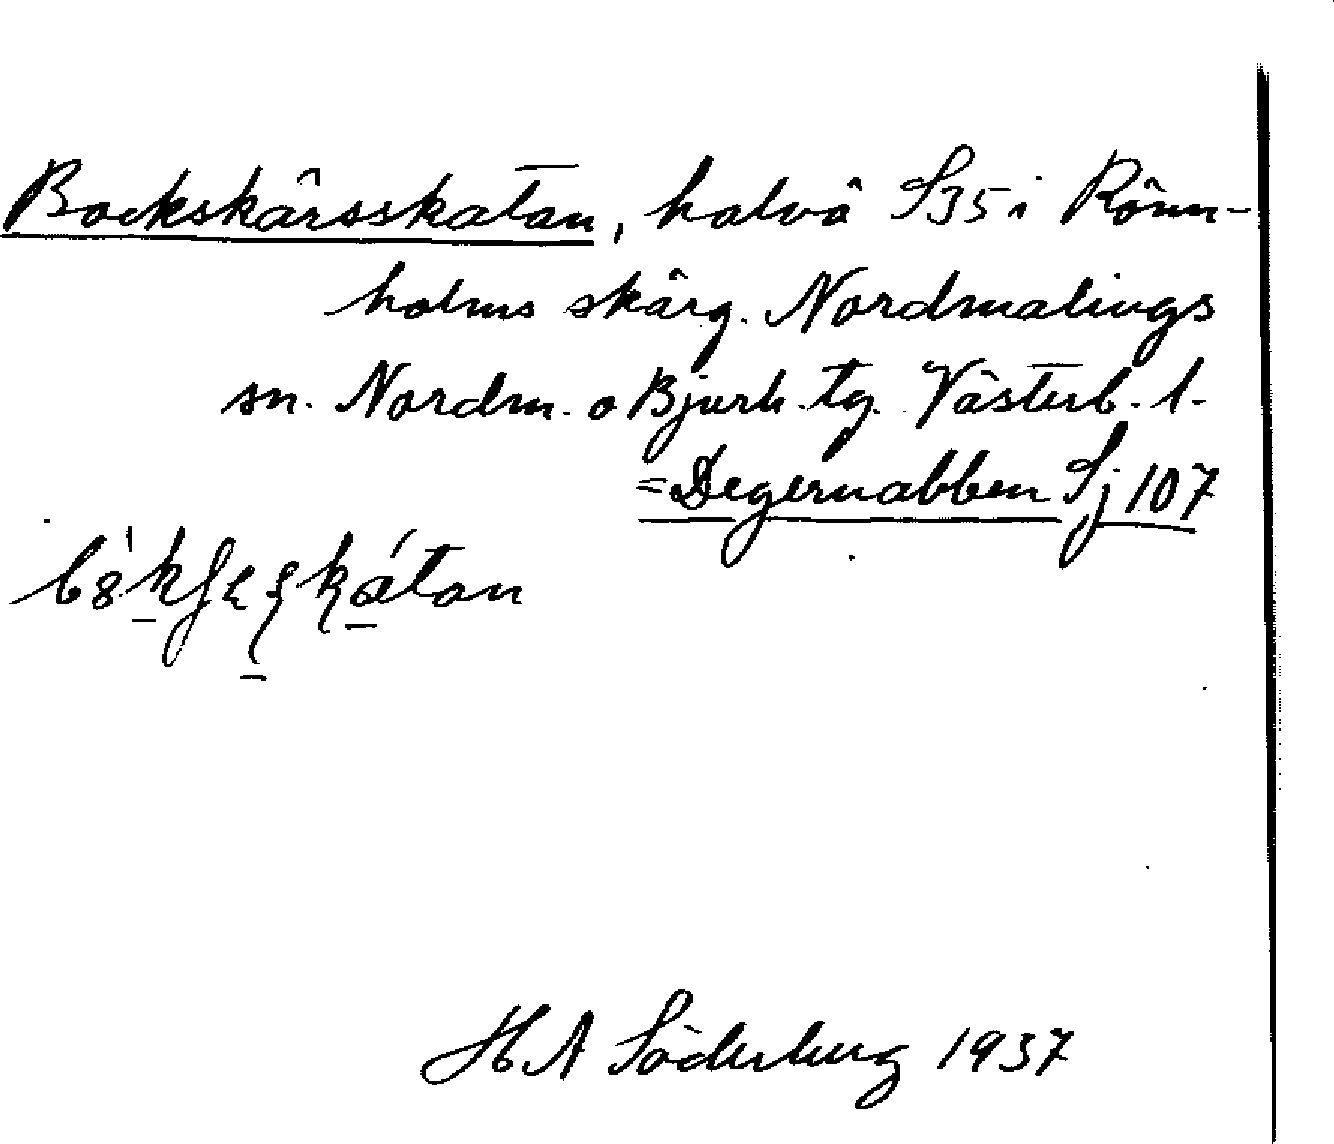 Bockskärsskatan, halvö S35 i Rönn-
holms skärg. Nordmalings
sn. Nordm. o Bjurh. tg. Västerb. l.
=Degernabben Sj 107
H A Söderberg 1937